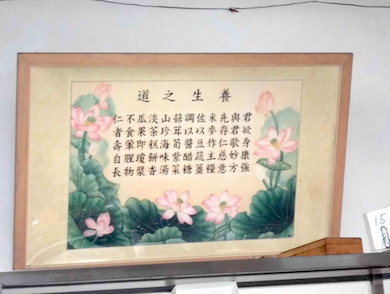 養生之道
君欲身康強
與君歌妙方
先存仁慈意
米麥作主糧
佐以豆蔬薑
調以醬醋糖
菇茸筍紫菜
山珍海味湯
淡茶糕餅香
瓜果即瓊漿
不食葷腥物
仁者壽自長
15